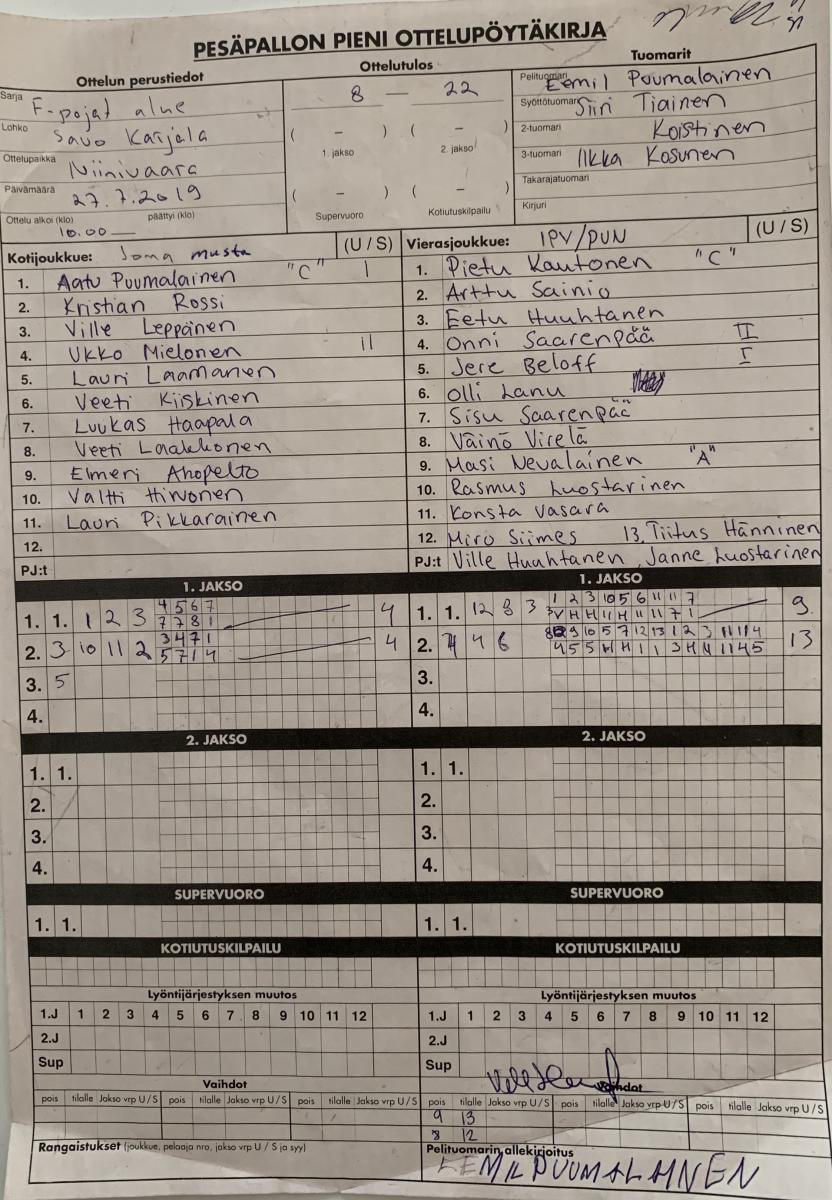 PESÄPALLON PIENI OTTELUPÖYTÄKIRJA
Ottelun perustiedot
Ottelutulos
Tuomarit
Sarja F-pojat alue
Lohko Savo Karjala
Ottelupaikka Niinivaara
Päivämäärä 27.7.2019
Ottelu alkoi (klo) päättyi (klo)
10.00
8 - 22
( - ) ( - )
1. jakso 2. jakso
( - ) ( - )
Supervuoro Kotiutuskilpailu
Pelituomari Eemil Puumalainen
Syöttötuomari Siiri Tiainen
2-tuomari Koistinen
3-tuomari Ilkka Kosunen
Takarajatuomari
Kirjuri
Kotijoukkue: Joma musta (U / S)
1. Aatu Puumalainen "C" I
2. Kristian Rossi
3. Ville Leppänen
4. Ukko Mielonen II
5. Lauri Laamanen
6. Veeti Kiiskinen
7. Luukas Haapala
8. Veeti Laakkonen
9. Elmeri Ahopelto
10. Valtti Hirvonen
11. Lauri Pikkarainen
12.
PJ:t
Vierasjoukkue: IPV/PUN (U / S)
1. Pietu Kautonen "C"
2. Arttu Sainio
3. Eetu Huuhtanen
4. Onni Saarenpää II
5. Jere Beloff I
6. Olli Lanu
7. Sisu Saarenpää
8. Väinö Virelä
9. Masi Nevalainen "A"
10. Rasmus Luostarinen
11. Konsta Vasara
12. Miro Siimes 13. Tiitus Hänninen
PJ:t Ville Huuhtanen, Janne Luostarinen
1. JAKSO
1. 1. 1 2 3 4 5 6 7 4
7 7 8 1
2. 3 10 11 2 3 4 7 1 4
5 7 1 4
3. 5
4.
1. JAKSO
1. 1. 12 8 3 1 2 3 10 5 6 11 11 7 9
2. 4 6 9 10 5 7 12 13 1 2 3 11 11 4 13
3.
4.
2. JAKSO
1. 1.
2.
3.
4.
2. JAKSO
1. 1.
2.
3.
4.
SUPERVUORO
1. 1.
SUPERVUORO
1. 1.
KOTIUTUSKILPAILU
KOTIUTUSKILPAILU
Lyöntijärjestyksen muutos
1.J 1 2 3 4 5 6 7 8 9 10 11 12
2.J
Sup
Lyöntijärjestyksen muutos
1.J 1 2 3 4 5 6 7 8 9 10 11 12
2.J
Sup
Vaihdot
pois tilalle Jakso vrp U / S pois tilalle Jakso vrp U / S pois tilalle Jakso vrp U / S
Vaihdot
pois tilalle Jakso vrp U / S pois tilalle Jakso vrp U / S pois tilalle Jakso vrp U / S
9 13
8 12
Rangaistukset (joukkue, pelaaja nro, jakso vrp U / S ja syy)
Pelituomarin allekirjoitus
EEMIL PUUMALAINEN